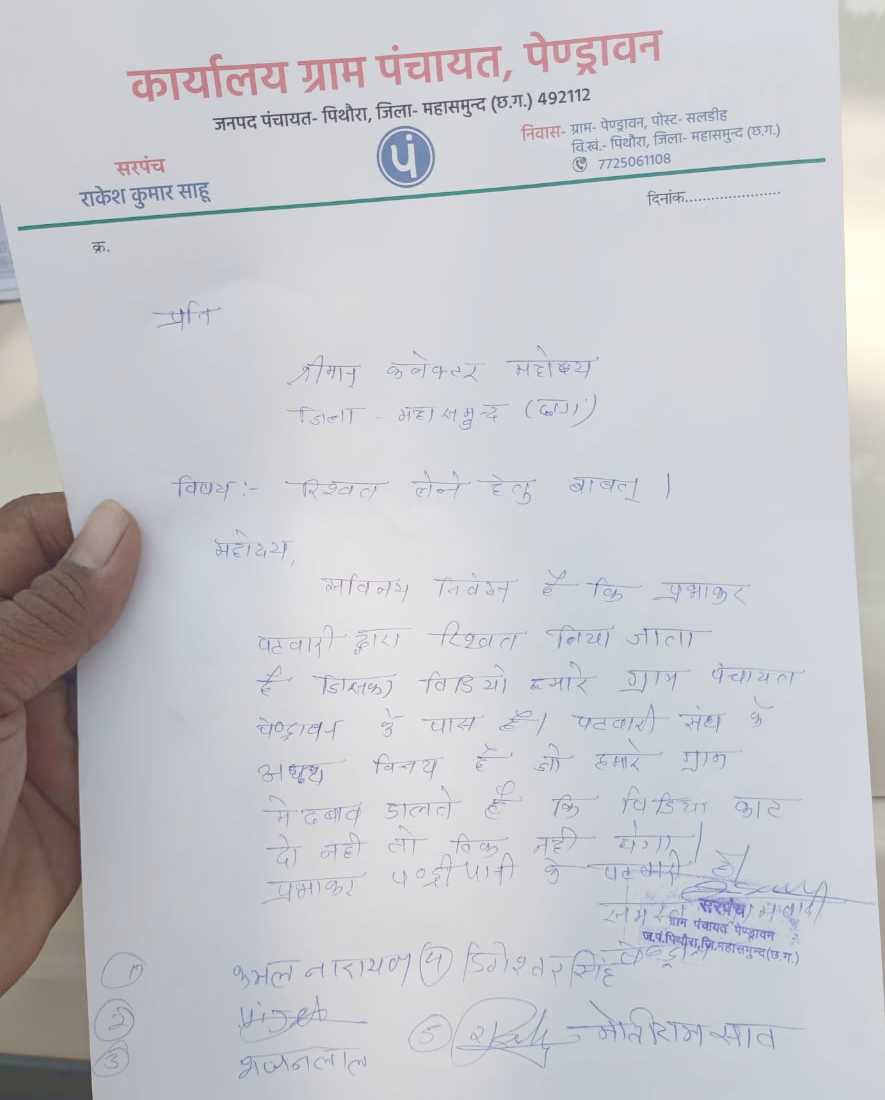 कार्यालय ग्राम पंचायत, पेण्ड्रावन
जनपद पंचायत- पिथौरा, जिला- महासमुन्द (छ.ग.) 492112
सरपंच
राकेश कुमार साहू
पं
निवास- ग्राम- पेण्ड्रावन, पोस्ट- सलडीह
वि.खं.- पिथौरा, जिला- महासमुन्द (छ.ग.)
7725061108
दिनांक.....................
क्र.
प्रति
श्रीमान् कलेक्टर महोदय
जिला - महासमुन्द (छ.ग.)
विषय :- रिश्वत लेने हेतु बाबत् ।
महोदय,
सविनय निवेदन है कि प्रभाकर
पटवारी द्वारा रिश्वत लिया जाता
है जिसका विडियो हमारे ग्राम पंचायत
पेण्ड्रावन के पास है। पटवारी संघ के
अध्यक्ष विनय है जो हमारे ग्राम
मे दबाव डालते है कि विडिया काट
दो नही तो ठिक नही
प्रभाकर के पटवारी है।
समस्त
सरपंच
ग्राम पंचायत पेण्ड्रावन
ज.पं.पिथौरा,जि.महासमुन्द(छ.ग.)
1) कमल नारायण (4) डिगेश्वर सिंह
2
3 भजनलाल
5 मोतीराम साव